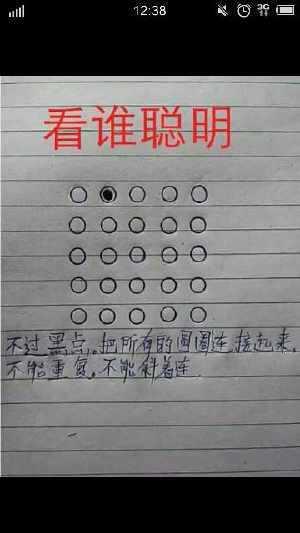 12:38
3G
看谁聪明
不过黑点。把所有的圆圈连接起来，
不能重复，不能斜着连